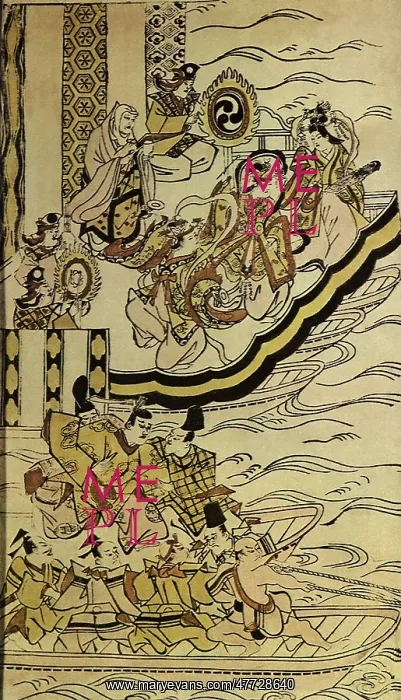 ME
PL
ME
PL
www.maryevans.com/47728640